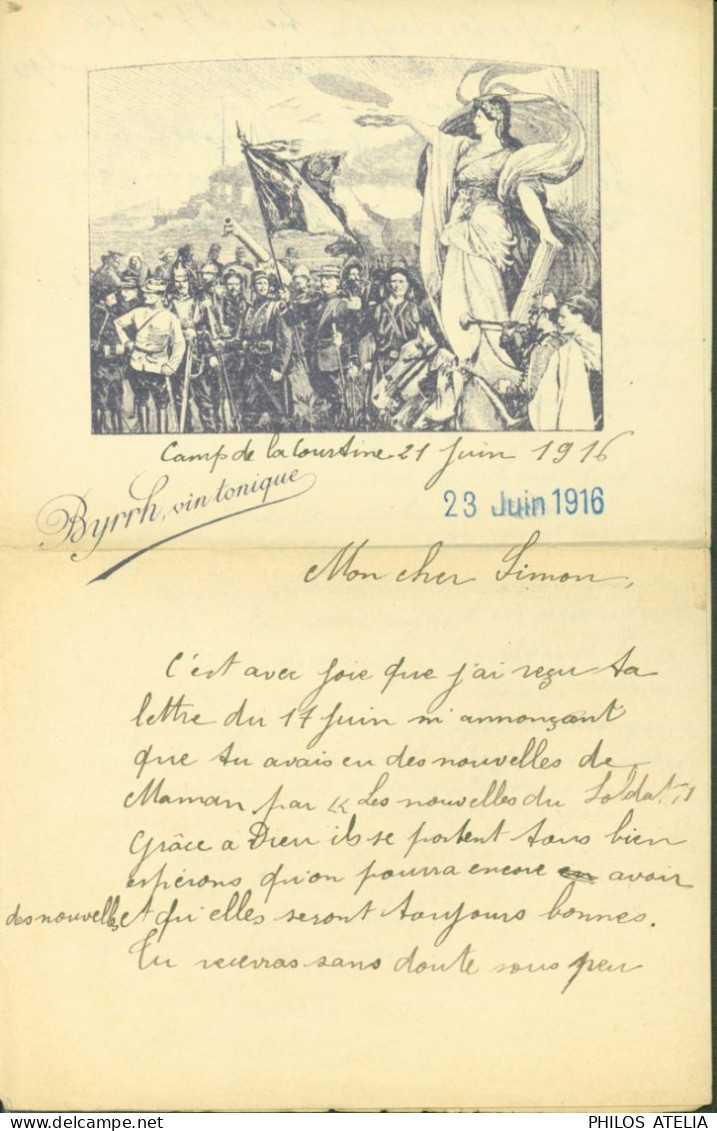 Camp de la Courtine 21 Juin 1916
Byrrh, vin tonique
23 Juin 1916
Mon cher Simon,
C'est avec joie que j'ai reçu ta
lettre du 17 Juin m'annonçant
que tu avais eu des nouvelles de
Maman par « Les nouvelles du Soldat »
Grâce à Dieu ils se portent tous bien
espérons qu'on pourra encore en avoir
des nouvelles, et qu'elles seront toujours bonnes.
Tu recevras sans doute sous peu
PHILOS ATELIA